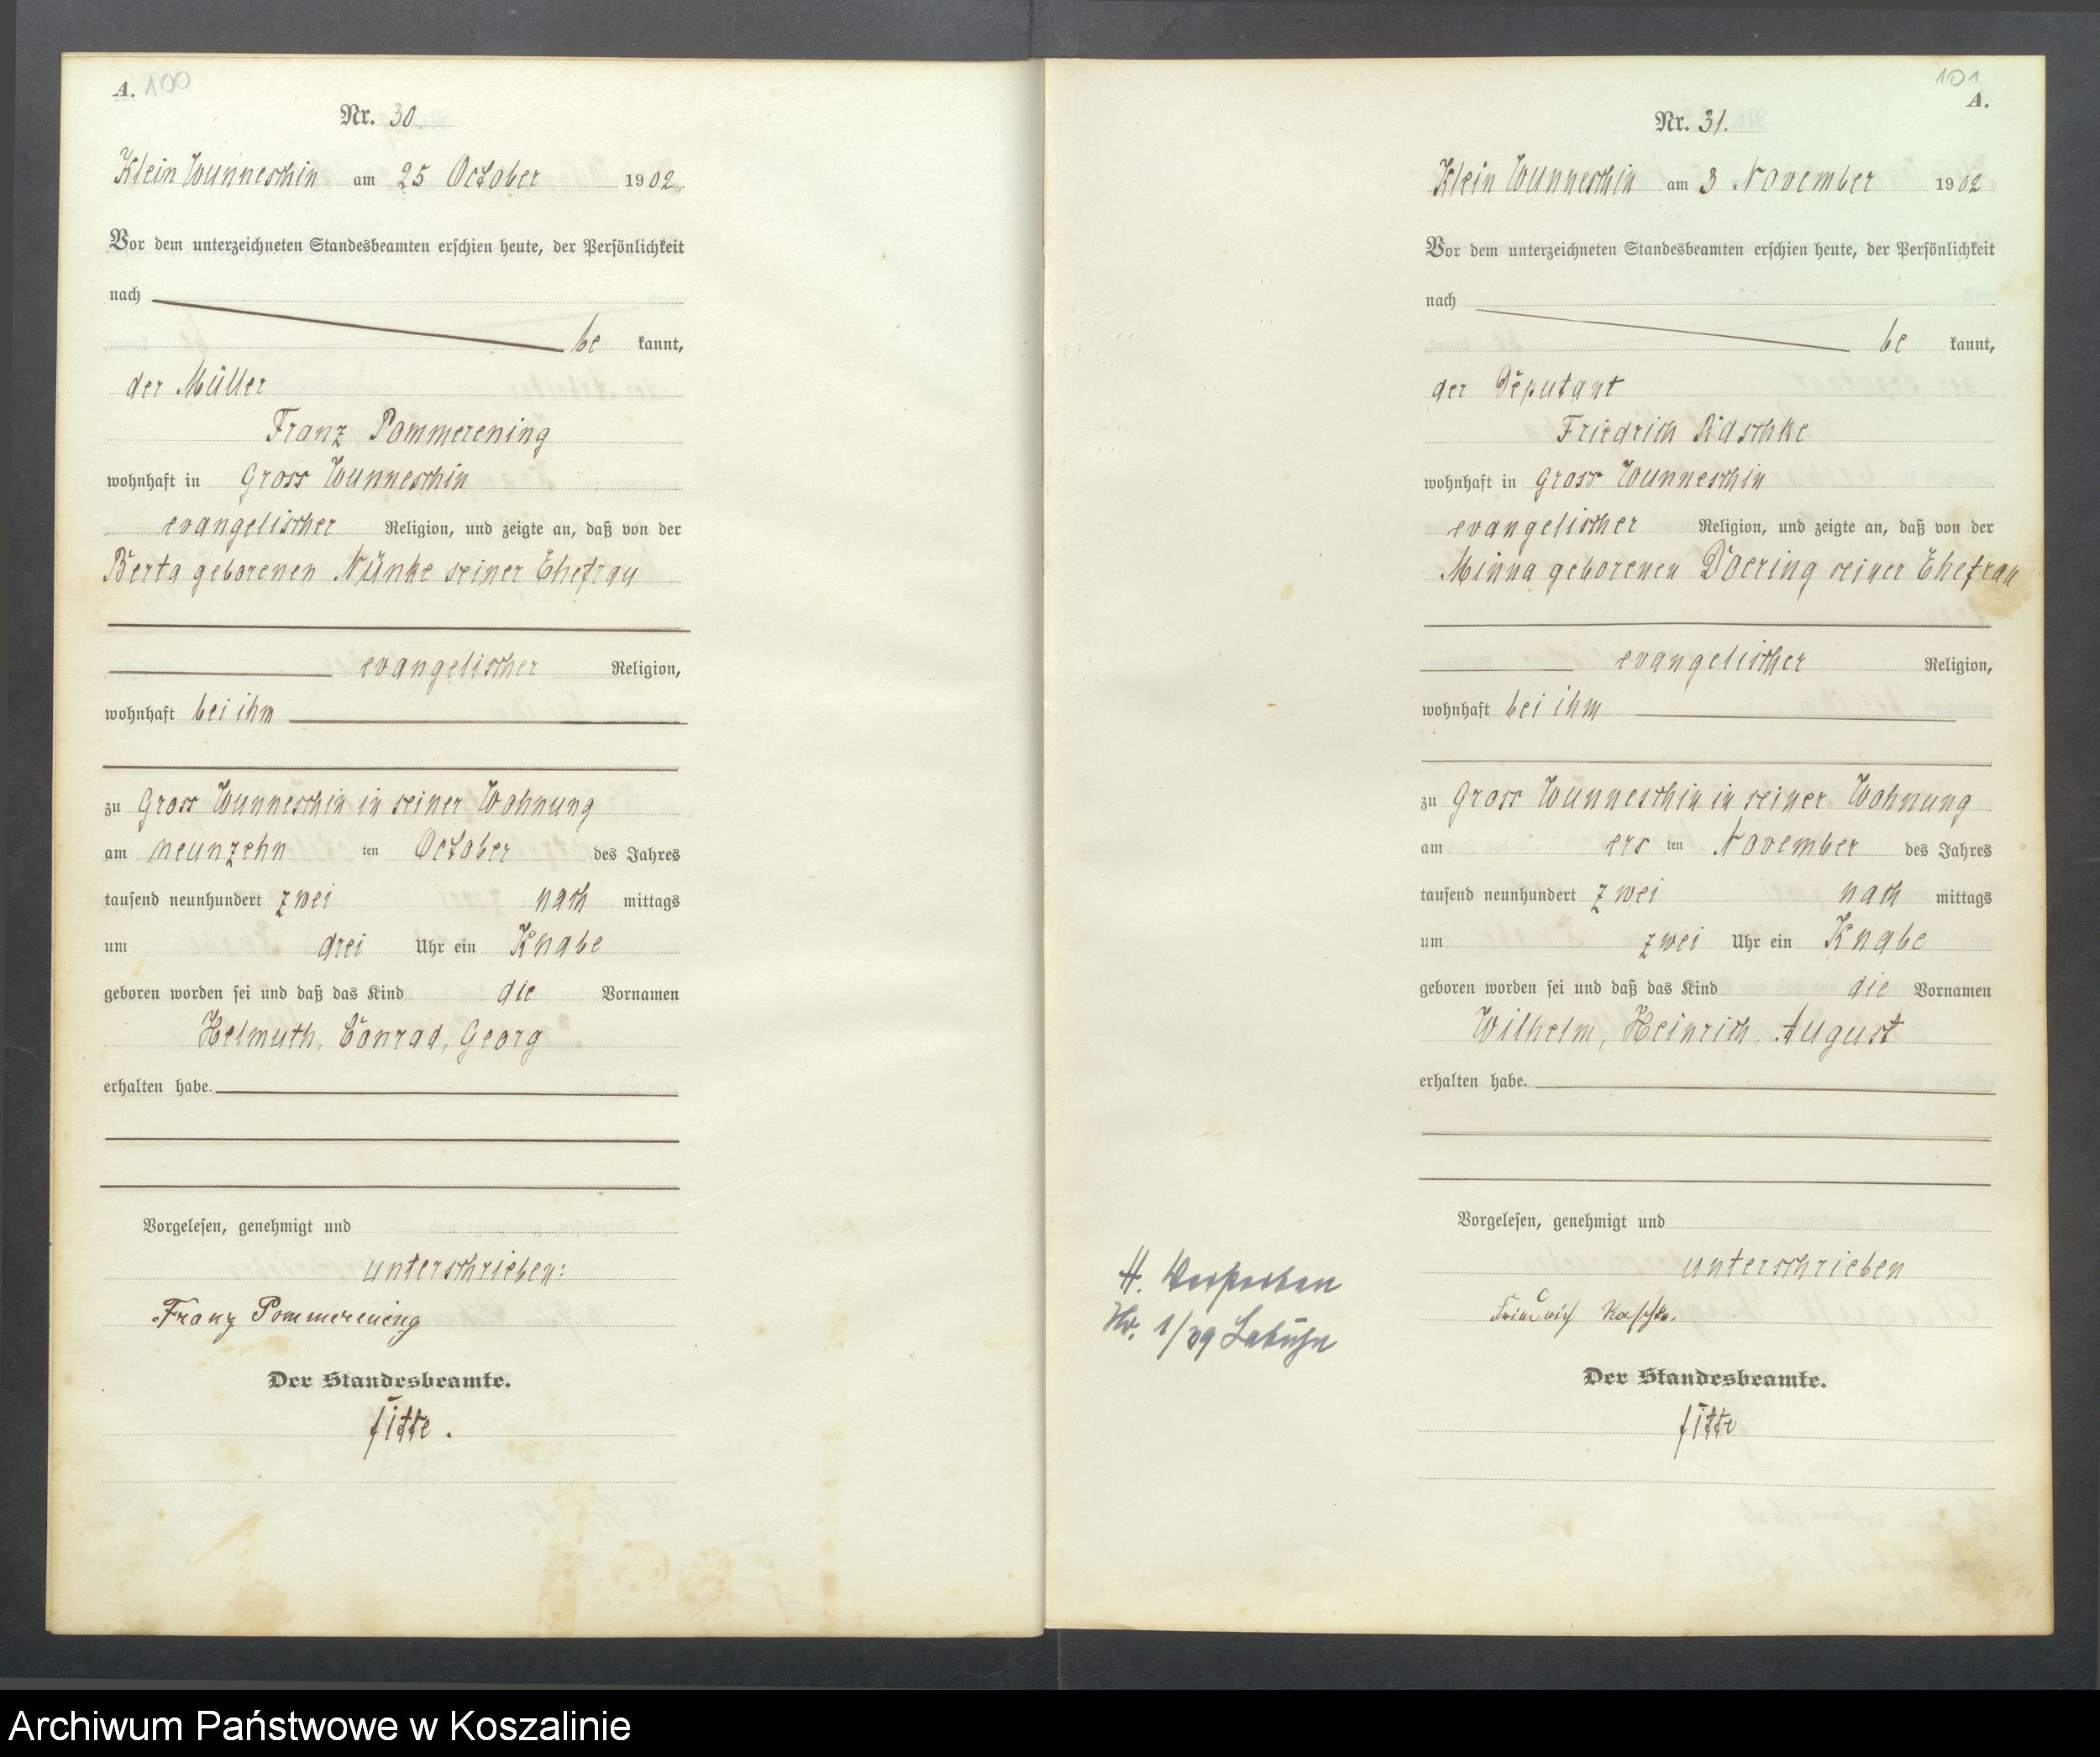 A. 100
Nr. 30.
Klein Wunneschin am 25 October 1902.
Vor dem unterzeichneten Standesbeamten erschien heute, der Persönlichkeit
nach
be kannt,
der Müller
Franz Pommerening
wohnhaft in Gross Wunneschin
evangelischer Religion, und zeigte an, daß von der
Berta geborenen Nünke seiner Ehefrau
evangelischer Religion,
wohnhaft bei ihm
zu Gross Wunneschin in seiner Wohnung
am neunzehn ten October des Jahres
tausend neunhundert zwei nach mittags
um drei Uhr ein Knabe
geboren worden sei und daß das Kind die Vornamen
Helmuth, Conrad, Georg
erhalten habe.
Vorgelesen, genehmigt und
unterschrieben:
Franz Pommerening
Der Standesbeamte.
101
A.
Nr. 31.
Klein Wunneschin am 3 November 1902
Vor dem unterzeichneten Standesbeamten erschien heute, der Persönlichkeit
nach
be kannt,
der Deputant
Friedrich Raschke
wohnhaft in Gross Wunneschin
evangelischer Religion, und zeigte an, daß von der
Minna geborenen Doering seiner Ehefrau
evangelischer Religion,
wohnhaft bei ihm
zu Gross Wunneschin in seiner Wohnung
am ers ten November des Jahres
tausend neunhundert zwei nach mittags
um zwei Uhr ein Knabe
geboren worden sei und daß das Kind die Vornamen
Wilhelm, Heinrich, August
erhalten habe.
Vorgelesen, genehmigt und
unterschrieben
Friedrich Raschke.
Der Standesbeamte.
H. Verstorben
Nr. 1/39 Labuhn
Archiwum Państwowe w Koszalinie